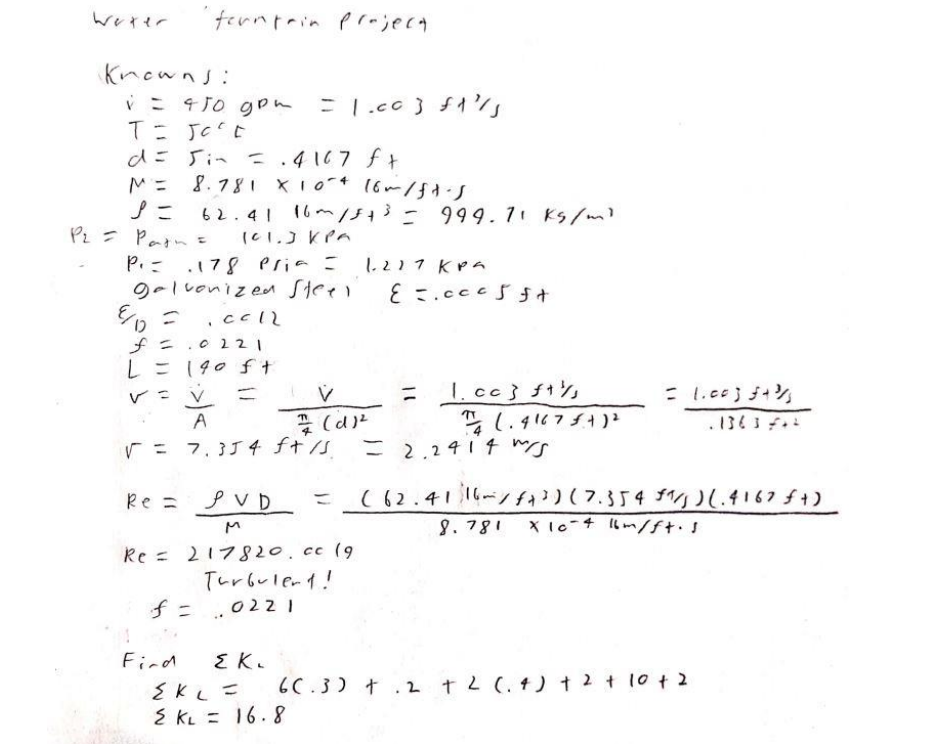 Water fountain Project
Knowns:
V̇ = 450 gpm = 1.003 ft³/s
T = 50°F
d = 5in = .4167 ft
μ = 8.781 × 10⁻⁴ lbm/ft·s
ρ = 62.41 lbm/ft³ = 999.71 kg/m³
P₂ = Patm = 101.3 kPa
P₁ = .178 psia = 1.227 kPa
galvonized steel ε = .0005 ft
ε/D = .0012
f = .0221
L = 190 ft
v = V̇/A = V̇/(π/4 (d)²) = 1.003 ft³/s/(π/4 (.4167 ft)²) = 1.003 ft³/s/.1363 ft²
v = 7.354 ft/s = 2.2414 m/s
Re = ρVD/μ = (62.41 lbm/ft³)(7.354 ft/s)(.4167 ft)/8.781 × 10⁻⁴ lbm/ft·s
Re = 217820.0019
Turbulent!
f = .0221
Find ΣK_L
ΣK_L = 6(.3) + .2 + 2(.4) + 2 + 10 + 2
ΣK_L = 16.8